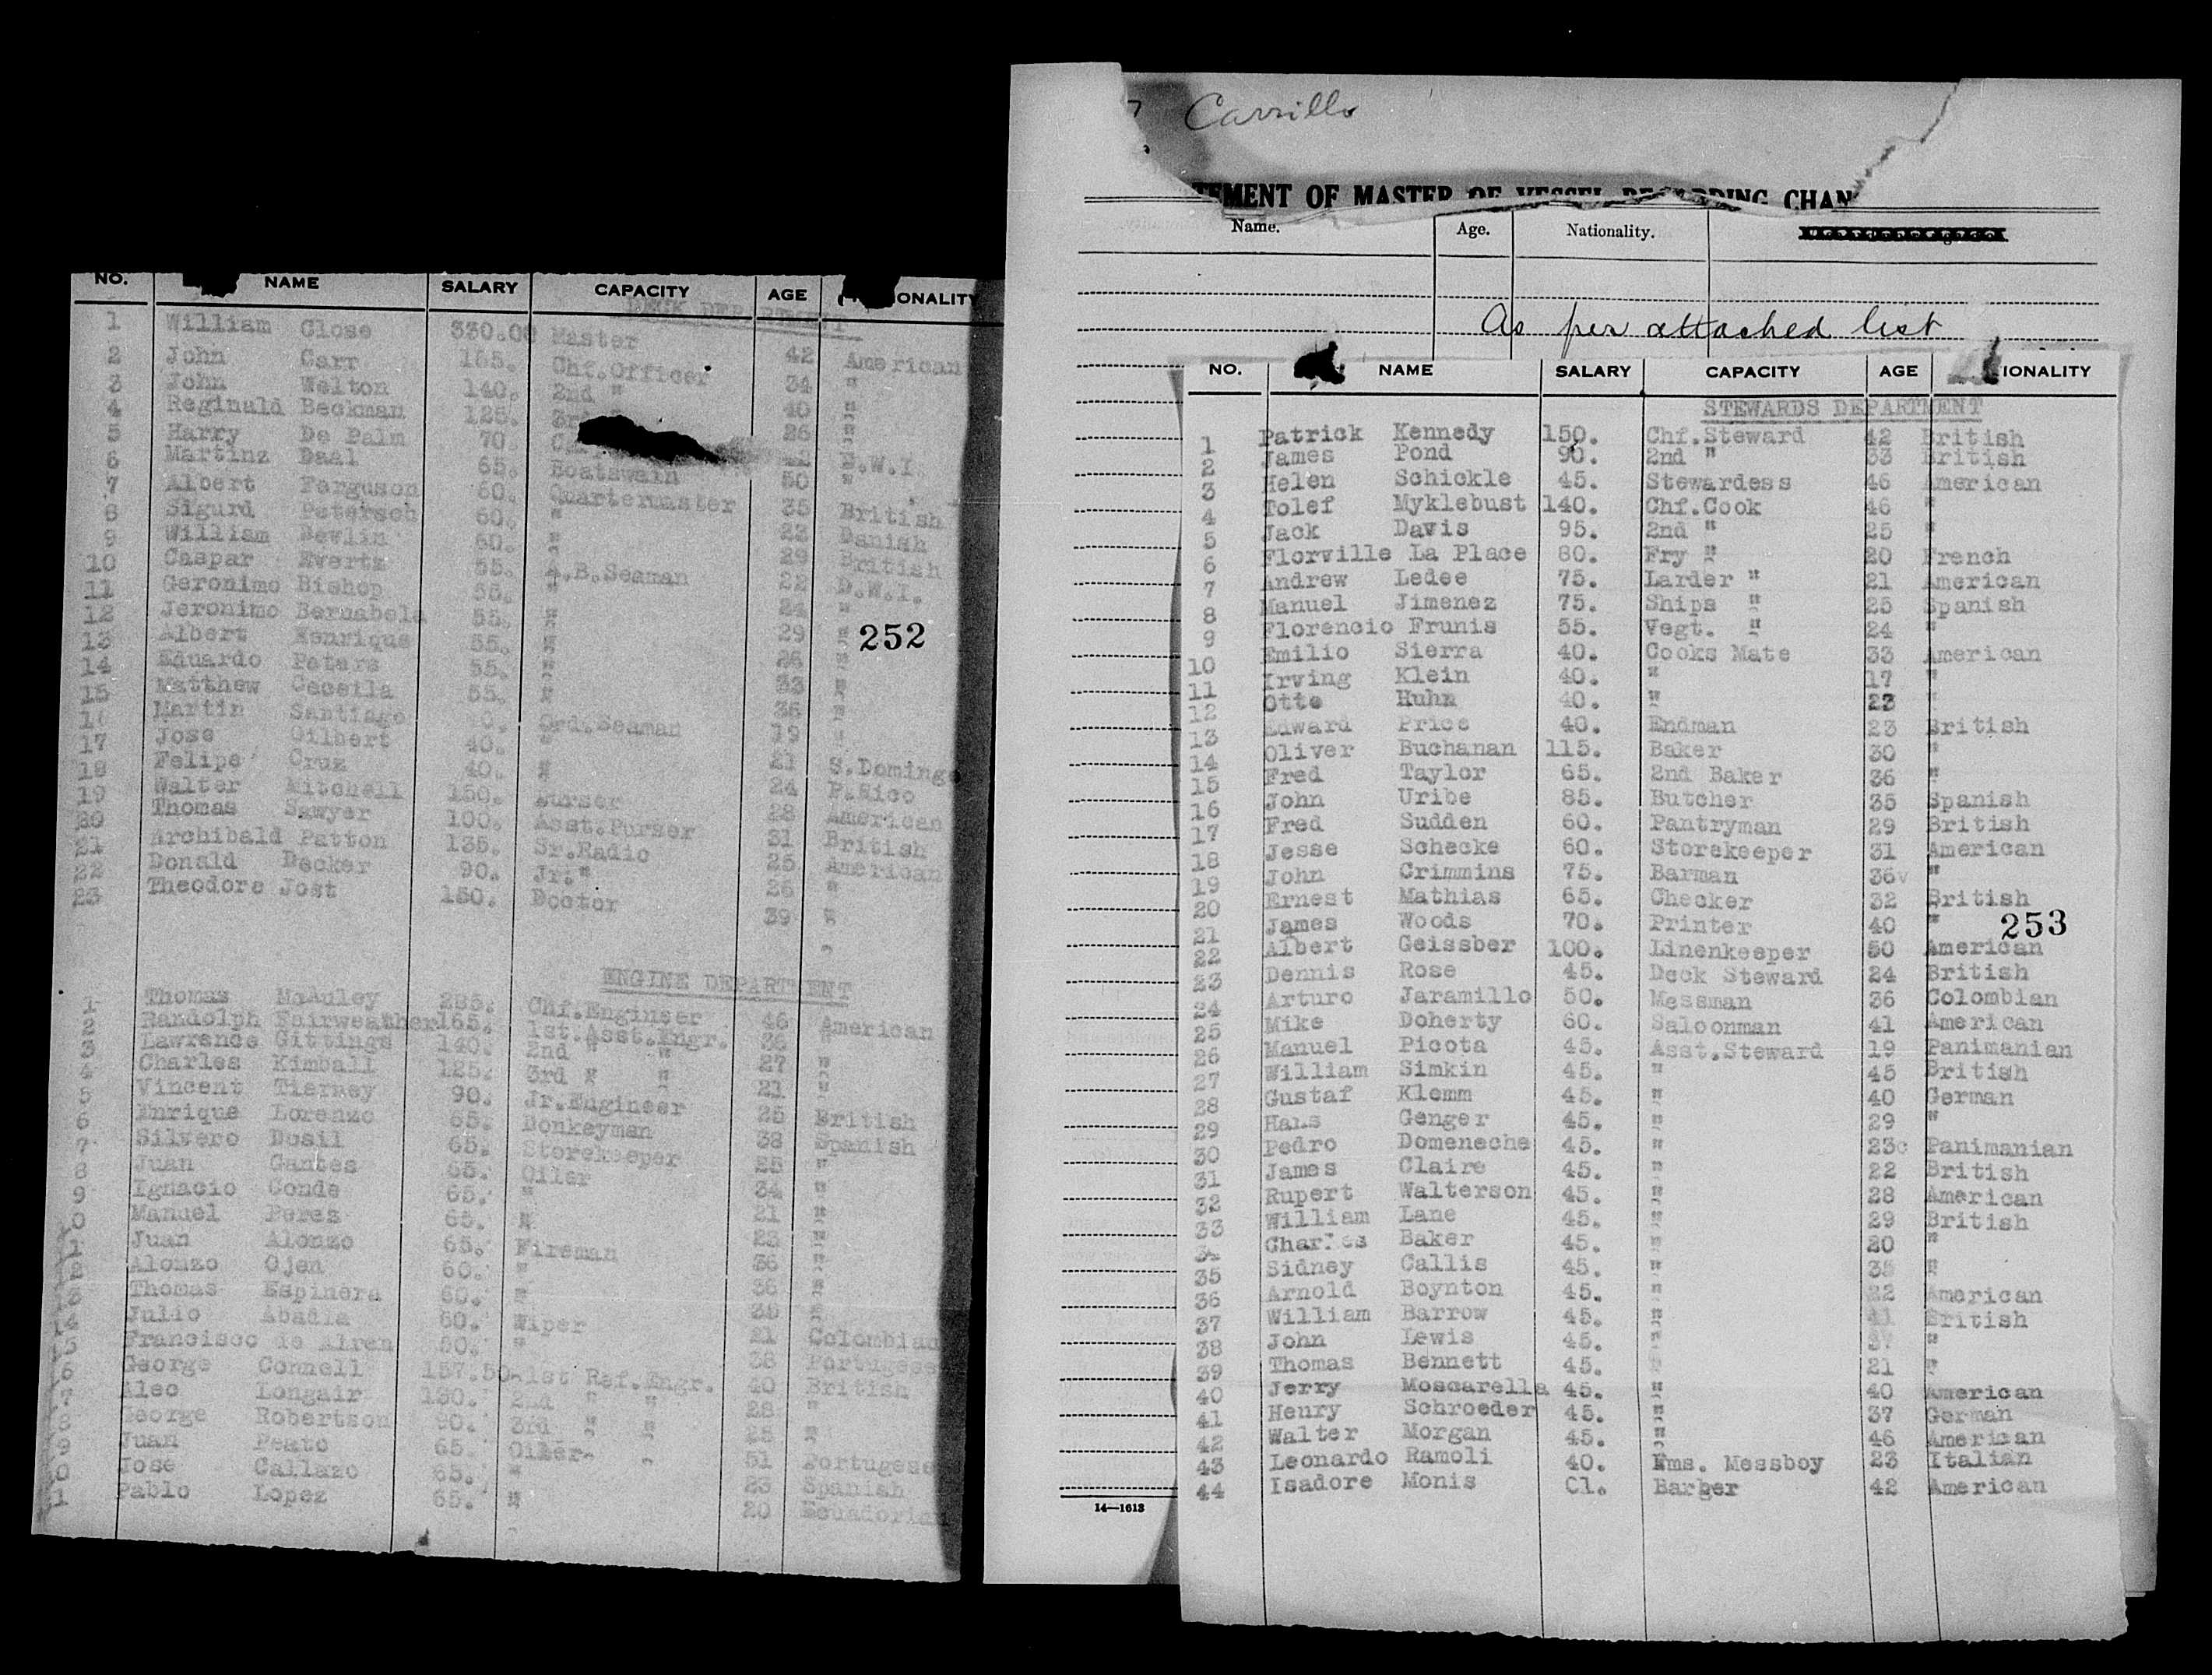 NO. NAME SALARY CAPACITY AGE ONALITY
DECK DEPARTMENT
1 William Close 330.00 Master 42 American
2 John Carr 185. Chf.Officer 34 "
3 John Walton 140. 2nd " 40 "
4 Reginald Beckman 125. 3rd 26 "
5 Harry De Palm 70. D.W.I.
6 Martinz Daal 65. Boatswain 50 "
7 Albert Ferguson 60. Quartermaster 35 British
8 Sigurd Petersen 60. " 22 Danish
9 William Bewlin 60. " 29 British
10 Caspar Evertz 55. A.B.Seaman 22 D.W.I.
11 Geronimo Bishop 55. " 24 "
12 Jeronimo Bernabela 55. " 29 "
13 Albert Henrique 55. " 26 "
14 Eduardo Peters 55. " 33 "
15 Matthew Ceceila 55. " 36 "
16 Martin Santiago 40. Ord.Seaman 19 "
17 Jose Gilbert 40. " 21 S.Domingo
18 Felipe Cruz 40. " 24 P.Rico
19 Walter Mitchell 150. Purser 28 American
20 Thomas Sawyer 100. Asst.Purser 31 British
21 Archibald Patton 135. Sr.Radio 25 American
22 Donald Decker 90. Jr." 26 "
23 Theodore Jost 150. Doctor 39 "
252
ENGINE DEPARTMENT
1 Thomas McAuley 285. Chf.Engineer 46 American
2 Randolph Fairweather 165. 1st.Asst.Engr. 36 "
3 Lawrence Gittings 140. 2nd " " 27 "
4 Charles Kimball 125. 3rd " " 21 "
5 Vincent Tierney 90. Jr.Engineer 25 British
6 Enrique Lorenzo 65. Donkeyman 38 Spanish
7 Silvero Dosil 65. Storekeeper 25 "
8 Juan Gantes 65. Oiler 34 "
9 Ignacio Conde 65. " 21 "
0 Manuel Perez 65. " 23 "
1 Juan Alonzo 65. Fireman 36 "
2 Alonzo Ojen 60. " 36 "
3 Thomas Espinera 60. " 35 "
4 Julio Abadia 60. Wiper 21 Colombian
5 Francisco de Alren 50. " 38 Portugese
6 George Connell 157.50 1st Ref.Engr. 40 British
7 Alec Longair 130. 2nd " " 28 "
8 George Robertson 90. 3rd " " 25 "
9 Juan Peato 65. Oiler 51 Portugese
0 Jose Callazo 65. " 23 Spanish
1 Pablo Lopez 65. " 20 Ecuadorian
Carrillo
TEMENT OF MASTER OF VESSEL REGARDING CHAN
Name. Age. Nationality.
As per attached list
NO. NAME SALARY CAPACITY AGE IONALITY
STEWARDS DEPARTMENT
1 Patrick Kennedy 150. Chf.Steward 42 British
2 James Pond 90. 2nd " 33 British
3 Helen Schickle 45. Stewardess 46 American
4 Tolef Myklebust 140. Chf.Cook 46 "
5 Jack Davis 95. 2nd " 25 "
6 Florville La Place 80. Fry " 20 French
7 Andrew Ledee 75. Larder " 21 American
8 Manuel Jimenez 75. Ships " 25 Spanish
9 Florencio Frunis 55. Vegt. " 24 "
10 Emilio Sierra 40. Cooks Mate 33 American
11 Irving Klein 40. " 17 "
12 Otto Huhn 40. " 23 "
13 Edward Price 40. Endman 23 British
14 Oliver Buchanan 115. Baker 30 "
15 Fred Taylor 65. 2nd Baker 36 "
16 John Uribe 85. Butcher 35 Spanish
17 Fred Sudden 60. Pantryman 29 British
18 Jesse Schecke 60. Storekeeper 31 American
19 John Crimmins 75. Barman 36 "
20 Ernest Mathias 65. Checker 32 British
21 James Woods 70. Printer 40 "
253
22 Albert Geissber 100. Linenkeeper 50 American
23 Dennis Rose 45. Deck Steward 24 British
24 Arturo Jaramillo 50. Messman 36 Colombian
25 Mike Doherty 60. Saloonman 41 American
26 Manuel Picota 45. Asst.Steward 19 Panimanian
27 William Simkin 45. " 45 British
28 Gustaf Klemm 45. " 40 German
29 Hans Genger 45. " 29 "
30 Pedro Domeneche 45. " 23 Panimanian
31 James Claire 45. " 22 British
32 Rupert Walterson 45. " 28 American
33 William Lane 45. " 29 British
34 Charles Baker 45. " 20 "
35 Sidney Callis 45. " 35 "
36 Arnold Boynton 45. " 22 American
37 William Barrow 45. " 41 British
38 John Lewis 45. " 37 "
39 Thomas Bennett 45. " 21 "
40 Jerry Moscarella 45. " 40 American
41 Henry Schroeder 45. " 37 German
42 Walter Morgan 45. " 46 American
43 Leonardo Ramoli 40. Fms. Messboy 23 Italian
44 Isadore Monis Cl. Barber 42 American
14—1613